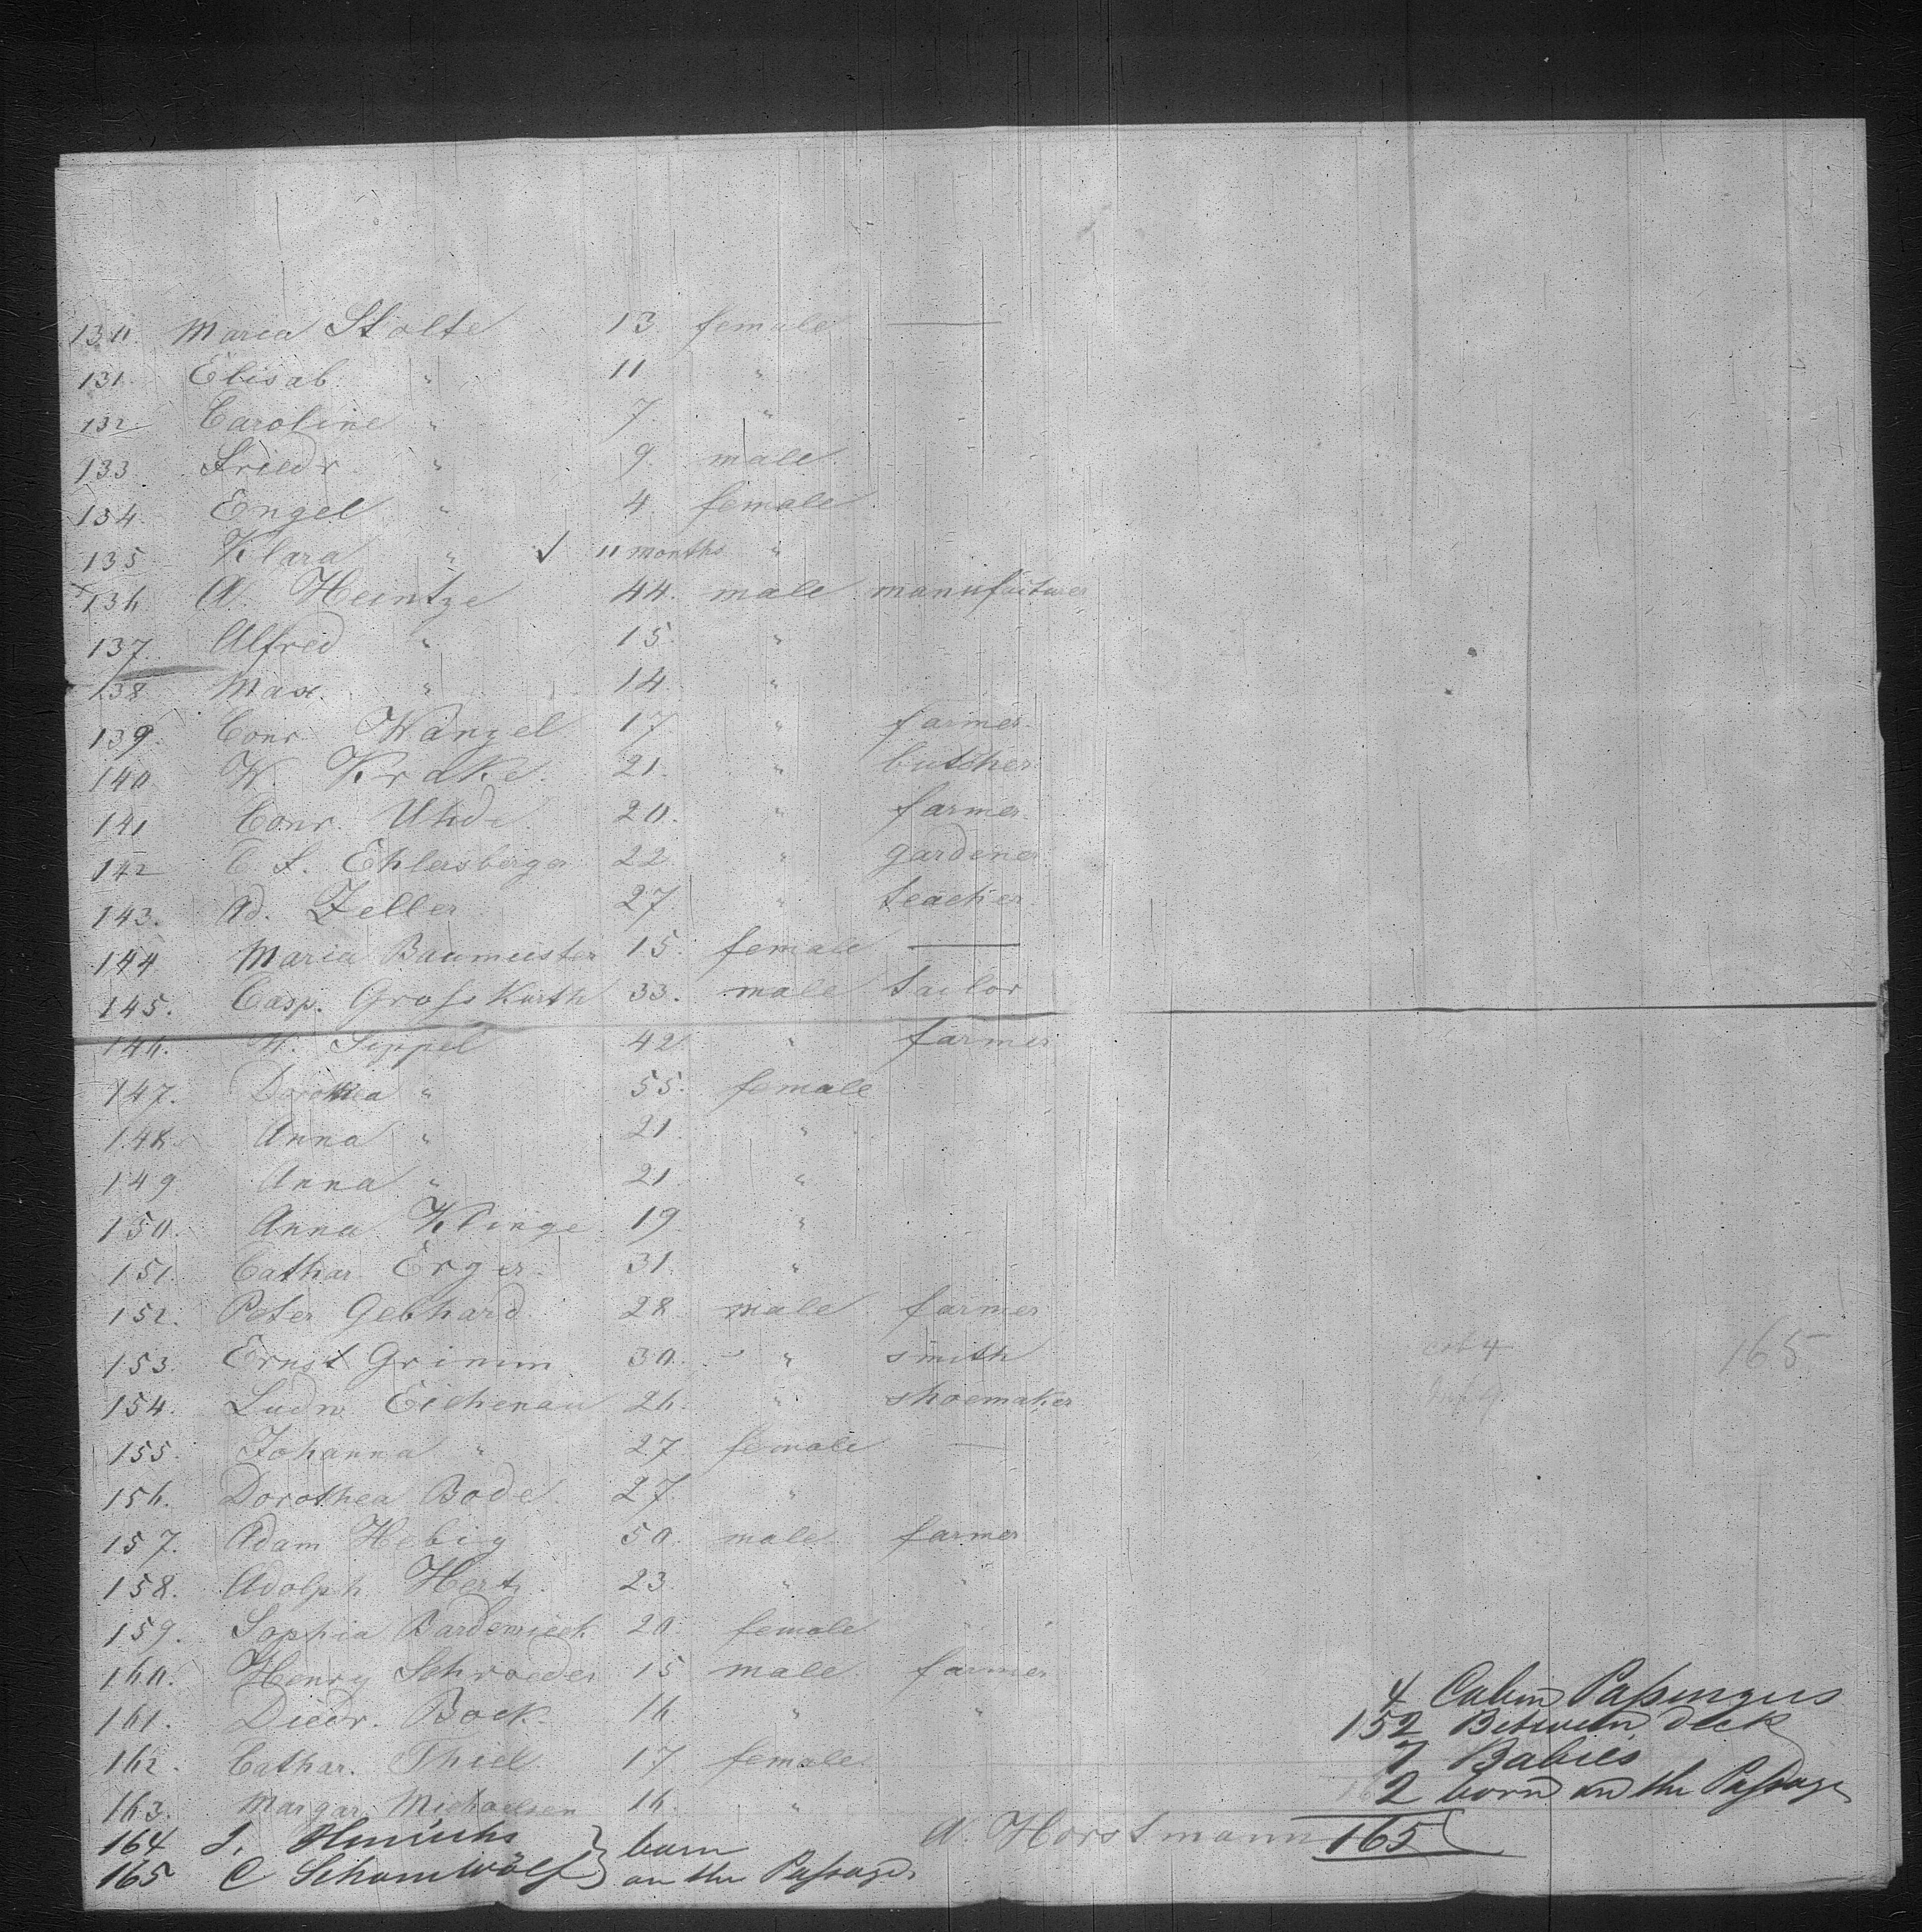 130. Maria Stolte 13. female —
131. Elisab. " 11 "
132. Caroline " 7. "
133. Friedr. " 9. male.
134. Engel " 4 female
135 Klara " ✓ 11 months "
136 A. Heintze 44. male manufacturer
137. Alfred " 15. "
138 Max. " 14. "
139. Conr. Wangel 17 " farmer.
140 W. Krake. 21. " butcher
141 Conr. Uhde. 20. " farmer.
142 C. F. Ehlersberger 22. " gardener
143. Ad. Zeller 27 " teacher
144 Maria Baumeister 15. female —
145. Casp. Grosskurth 33. male tailor
146. Seppel 42. " farmer
147. Dorothea " 55. female
148. Anna " 21. "
149 Anna " 21. "
150. Anna Klinge 19. "
151. Cathar. Erger. 31. "
152. Peter Gebhard. 28. male farmer
153. Ernst Grimm 30. " smith
154. Ludw. Eichenau 26. " shoemaker
155. Johanna " 27. female —
156. Dorothea Bode. 27. "
157. Adam Hebig 50. male farmer
158. Adolph Hertz. 23. " "
159. Sophia Bardewieck 20. female "
160. Henry Schroeder 15 male farmer
161. Diedr. Bock. 16 " "
162. Cathar. Thiel. 17. female
163. Margar. Michaelsen 16. "
164 J. Hinrichs } born
165 C } on the Passage.
165
4 Cabin Passengers
152 Between deck
7 Babies
2 born on the Passage
A. Horstmann 165